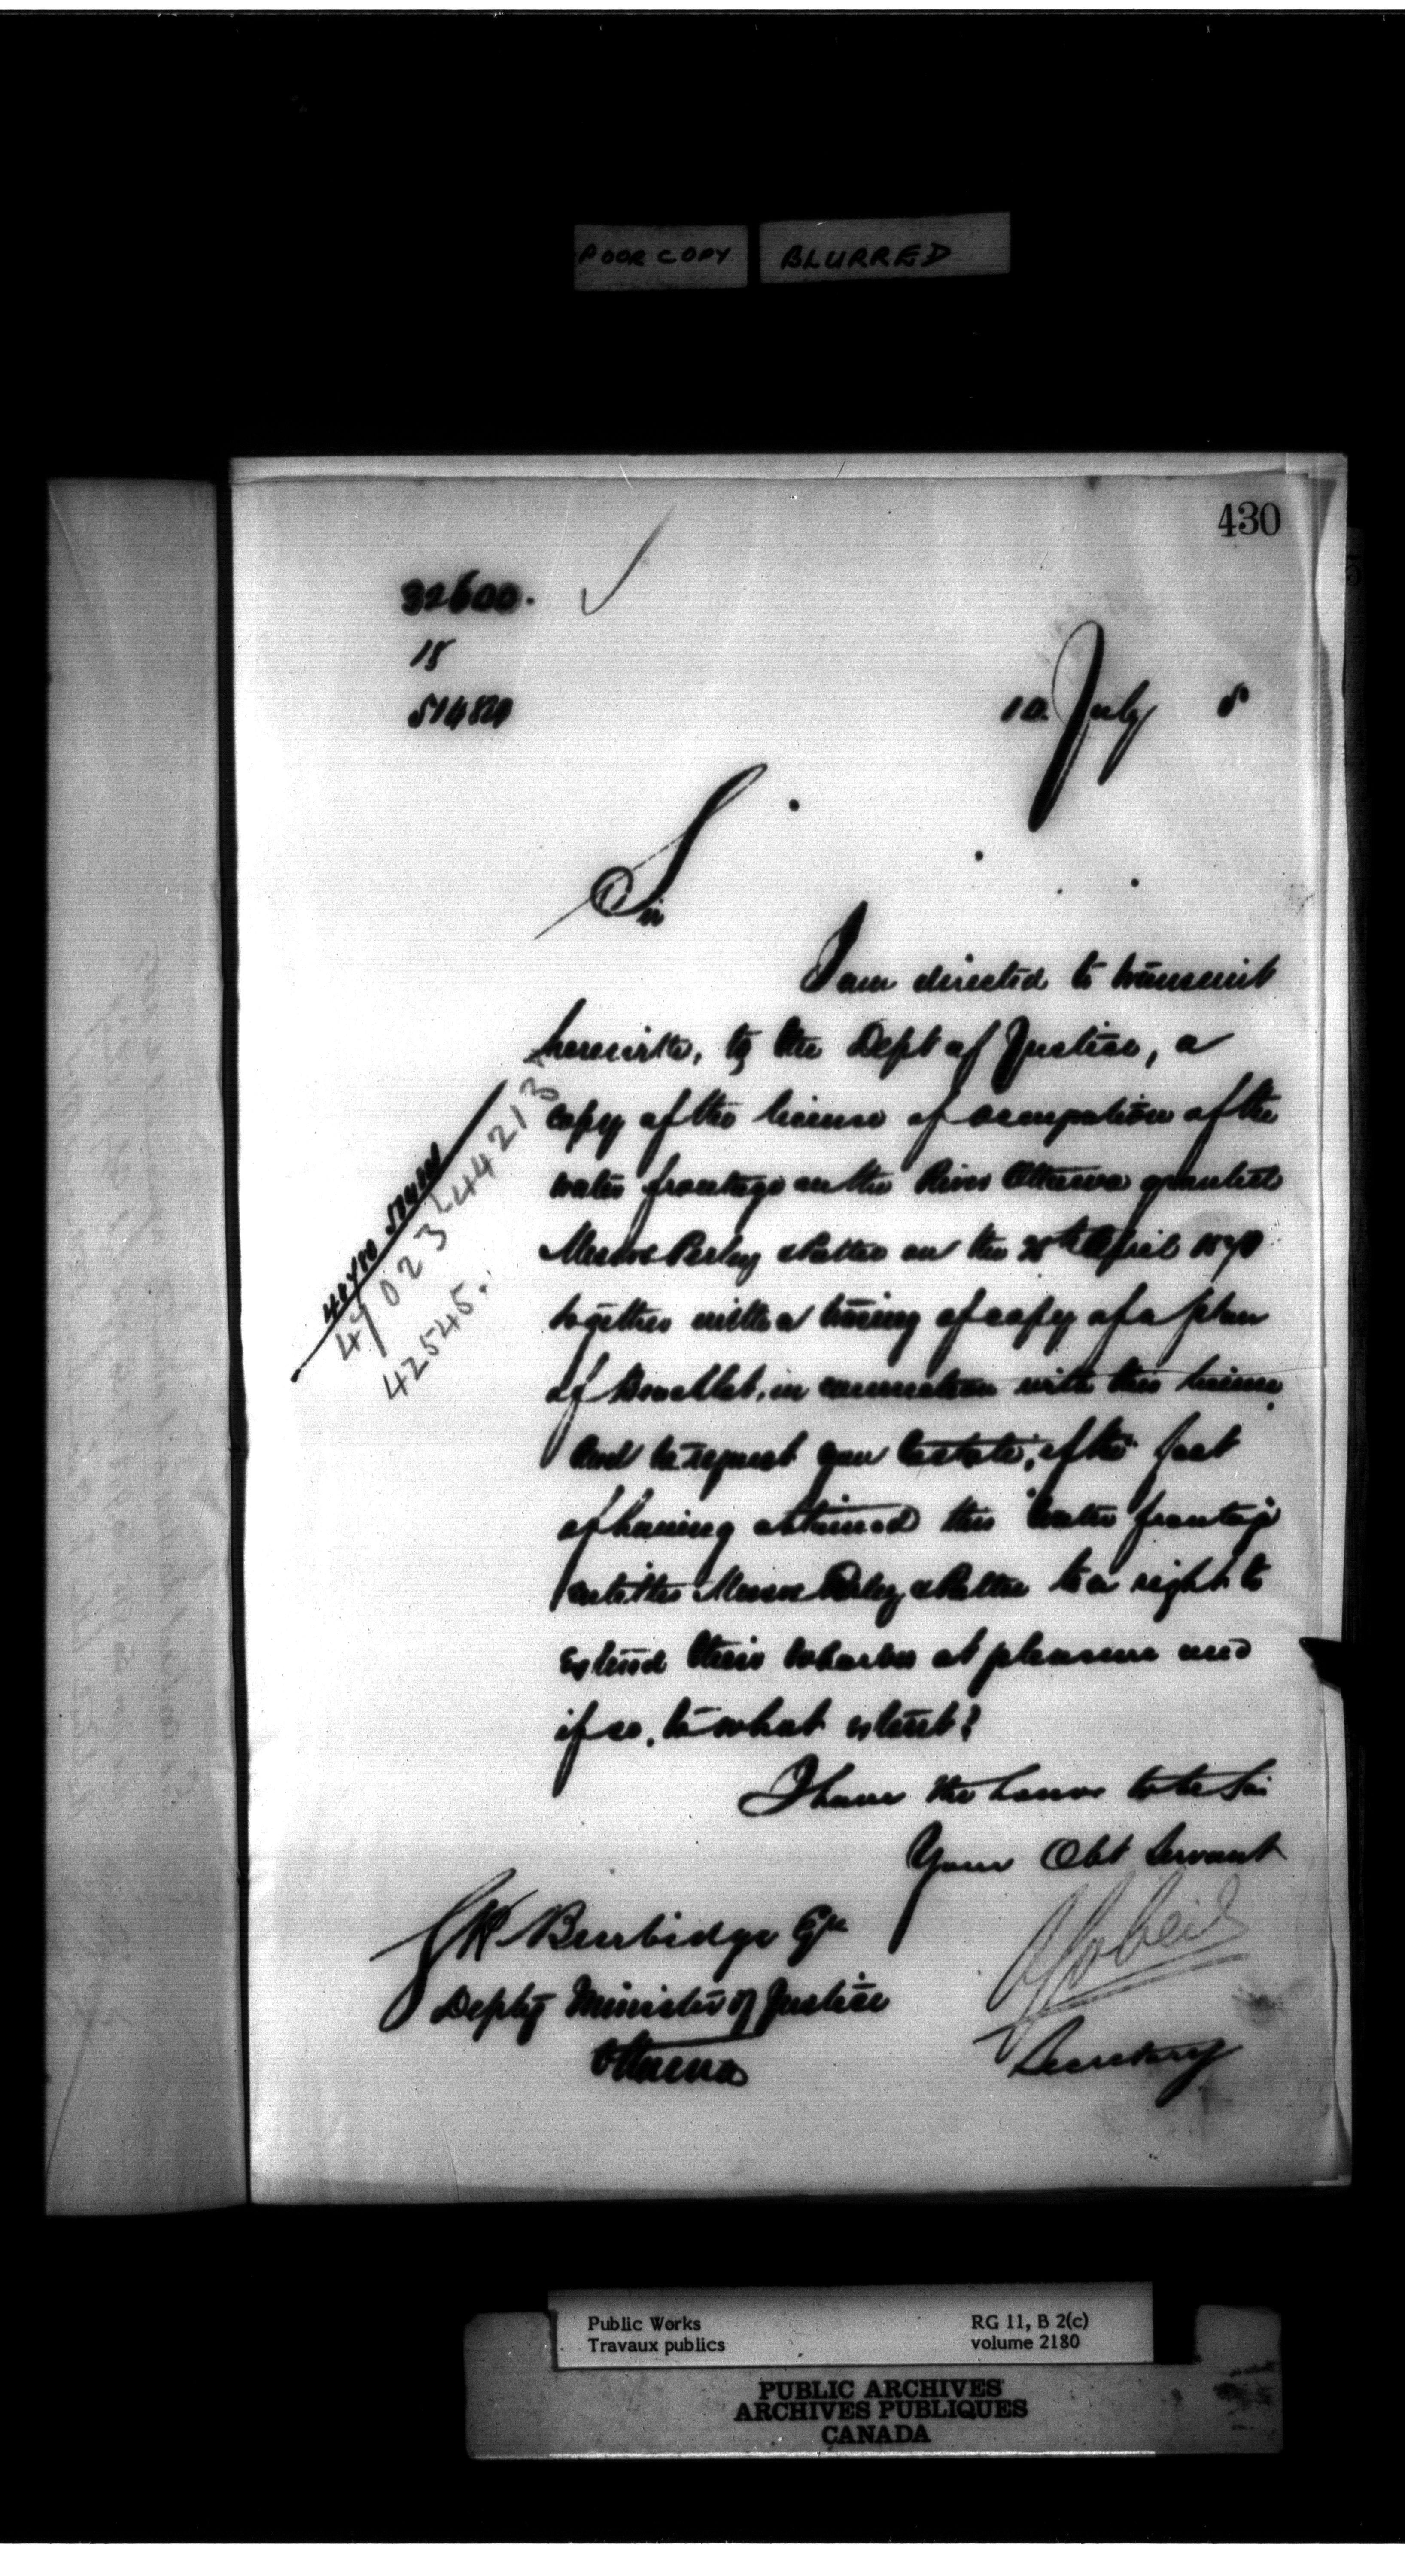 POOR COPY BLURRED
430
32600.
15
10 July 5
Sir
I am directed to transmit
herewith, to the Dept of Justice, a
copy of the license of occupation of the
water frontage on the River Ottawa granted
Messrs Perley & Pattee on the April 1870
together with a tracing of copy of a plan
of in connection with this license,
and to request you to state, if the fact
of having obtained this water frontage
entitles Messrs Perley & Pattee to a right to
extend their wharves at pleasure and
if so, to what extent?
47023 44213
42545.
I have the honor to be Sir
Your Obt Servant
G W Burbidge Esqr
Depty Minister of Justice
Ottawa
Secretary
Public Works RG 11, B 2(c)
Travaux publics volume 2180
PUBLIC ARCHIVES
ARCHIVES PUBLIQUES
CANADA